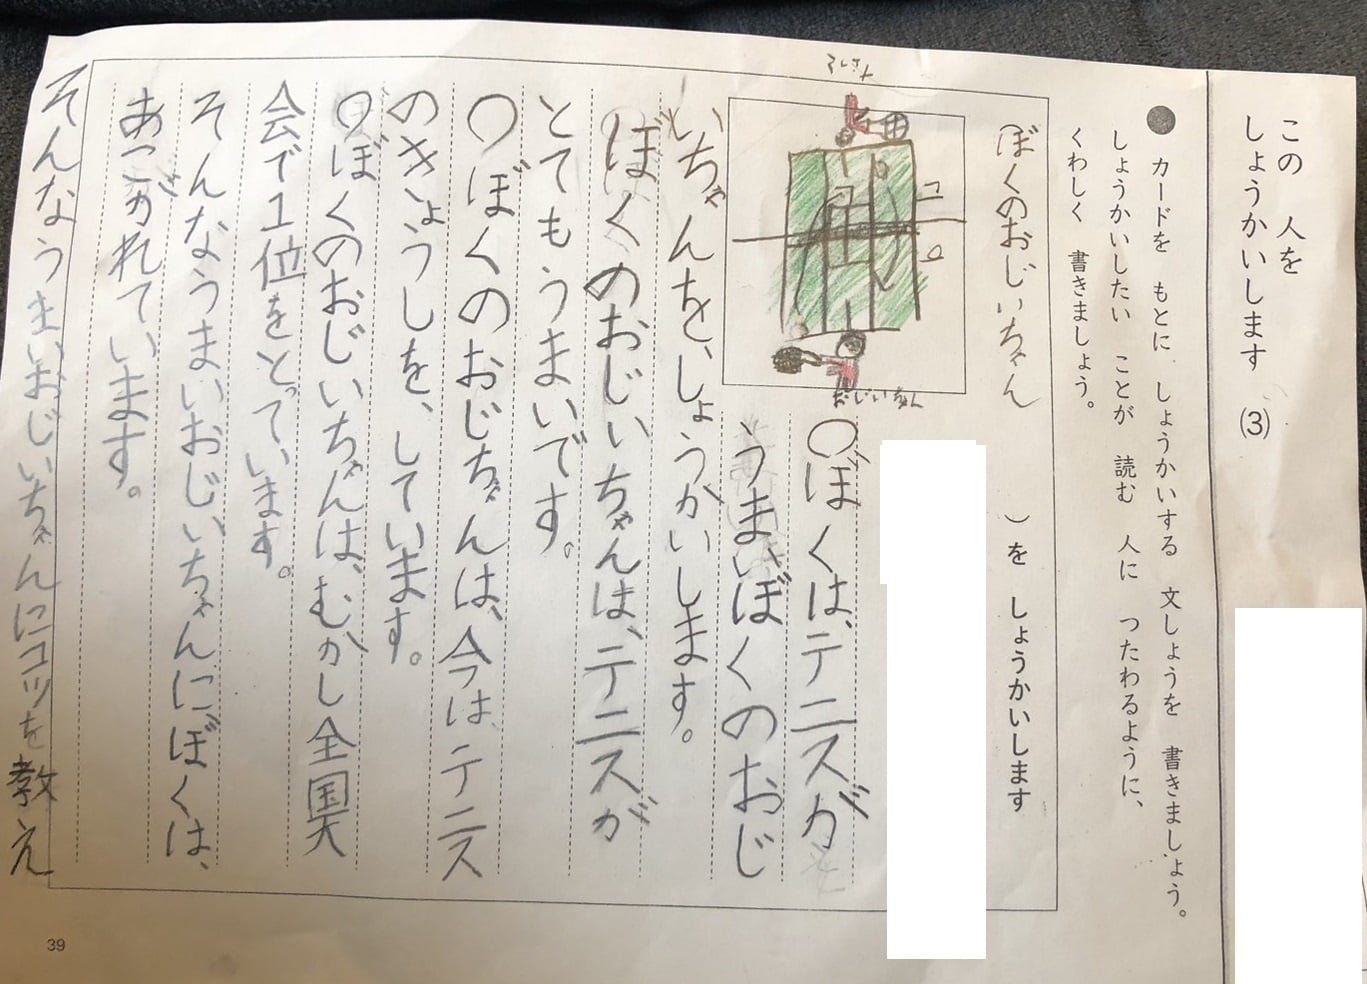 この 人を
しょうかいします (3)
● カードを もとに しょうかいする 文しょうを 書きましょう。
しょうかいしたい ことが 読む 人に つたわるように、
くわしく 書きましょう。
ぼくのおじいちゃん )を しょうかいします
コ
ロ
おじいちゃん
〇ぼくは、テニスが
うまいぼくのおじ
いちゃんを、しょうかいします。
ぼくのおじいちゃんは、テニスが
とてもうまいです。
〇ぼくのおじちゃんは、今は、テニス
のきょうしを、しています。
〇ぼくのおじいちゃんは、むかし全国大
会で1位をとっています。
そんなうまいおじいちゃんにぼくは、
あこがれています。
そんなうまいおじいちゃんにコツを教え
39